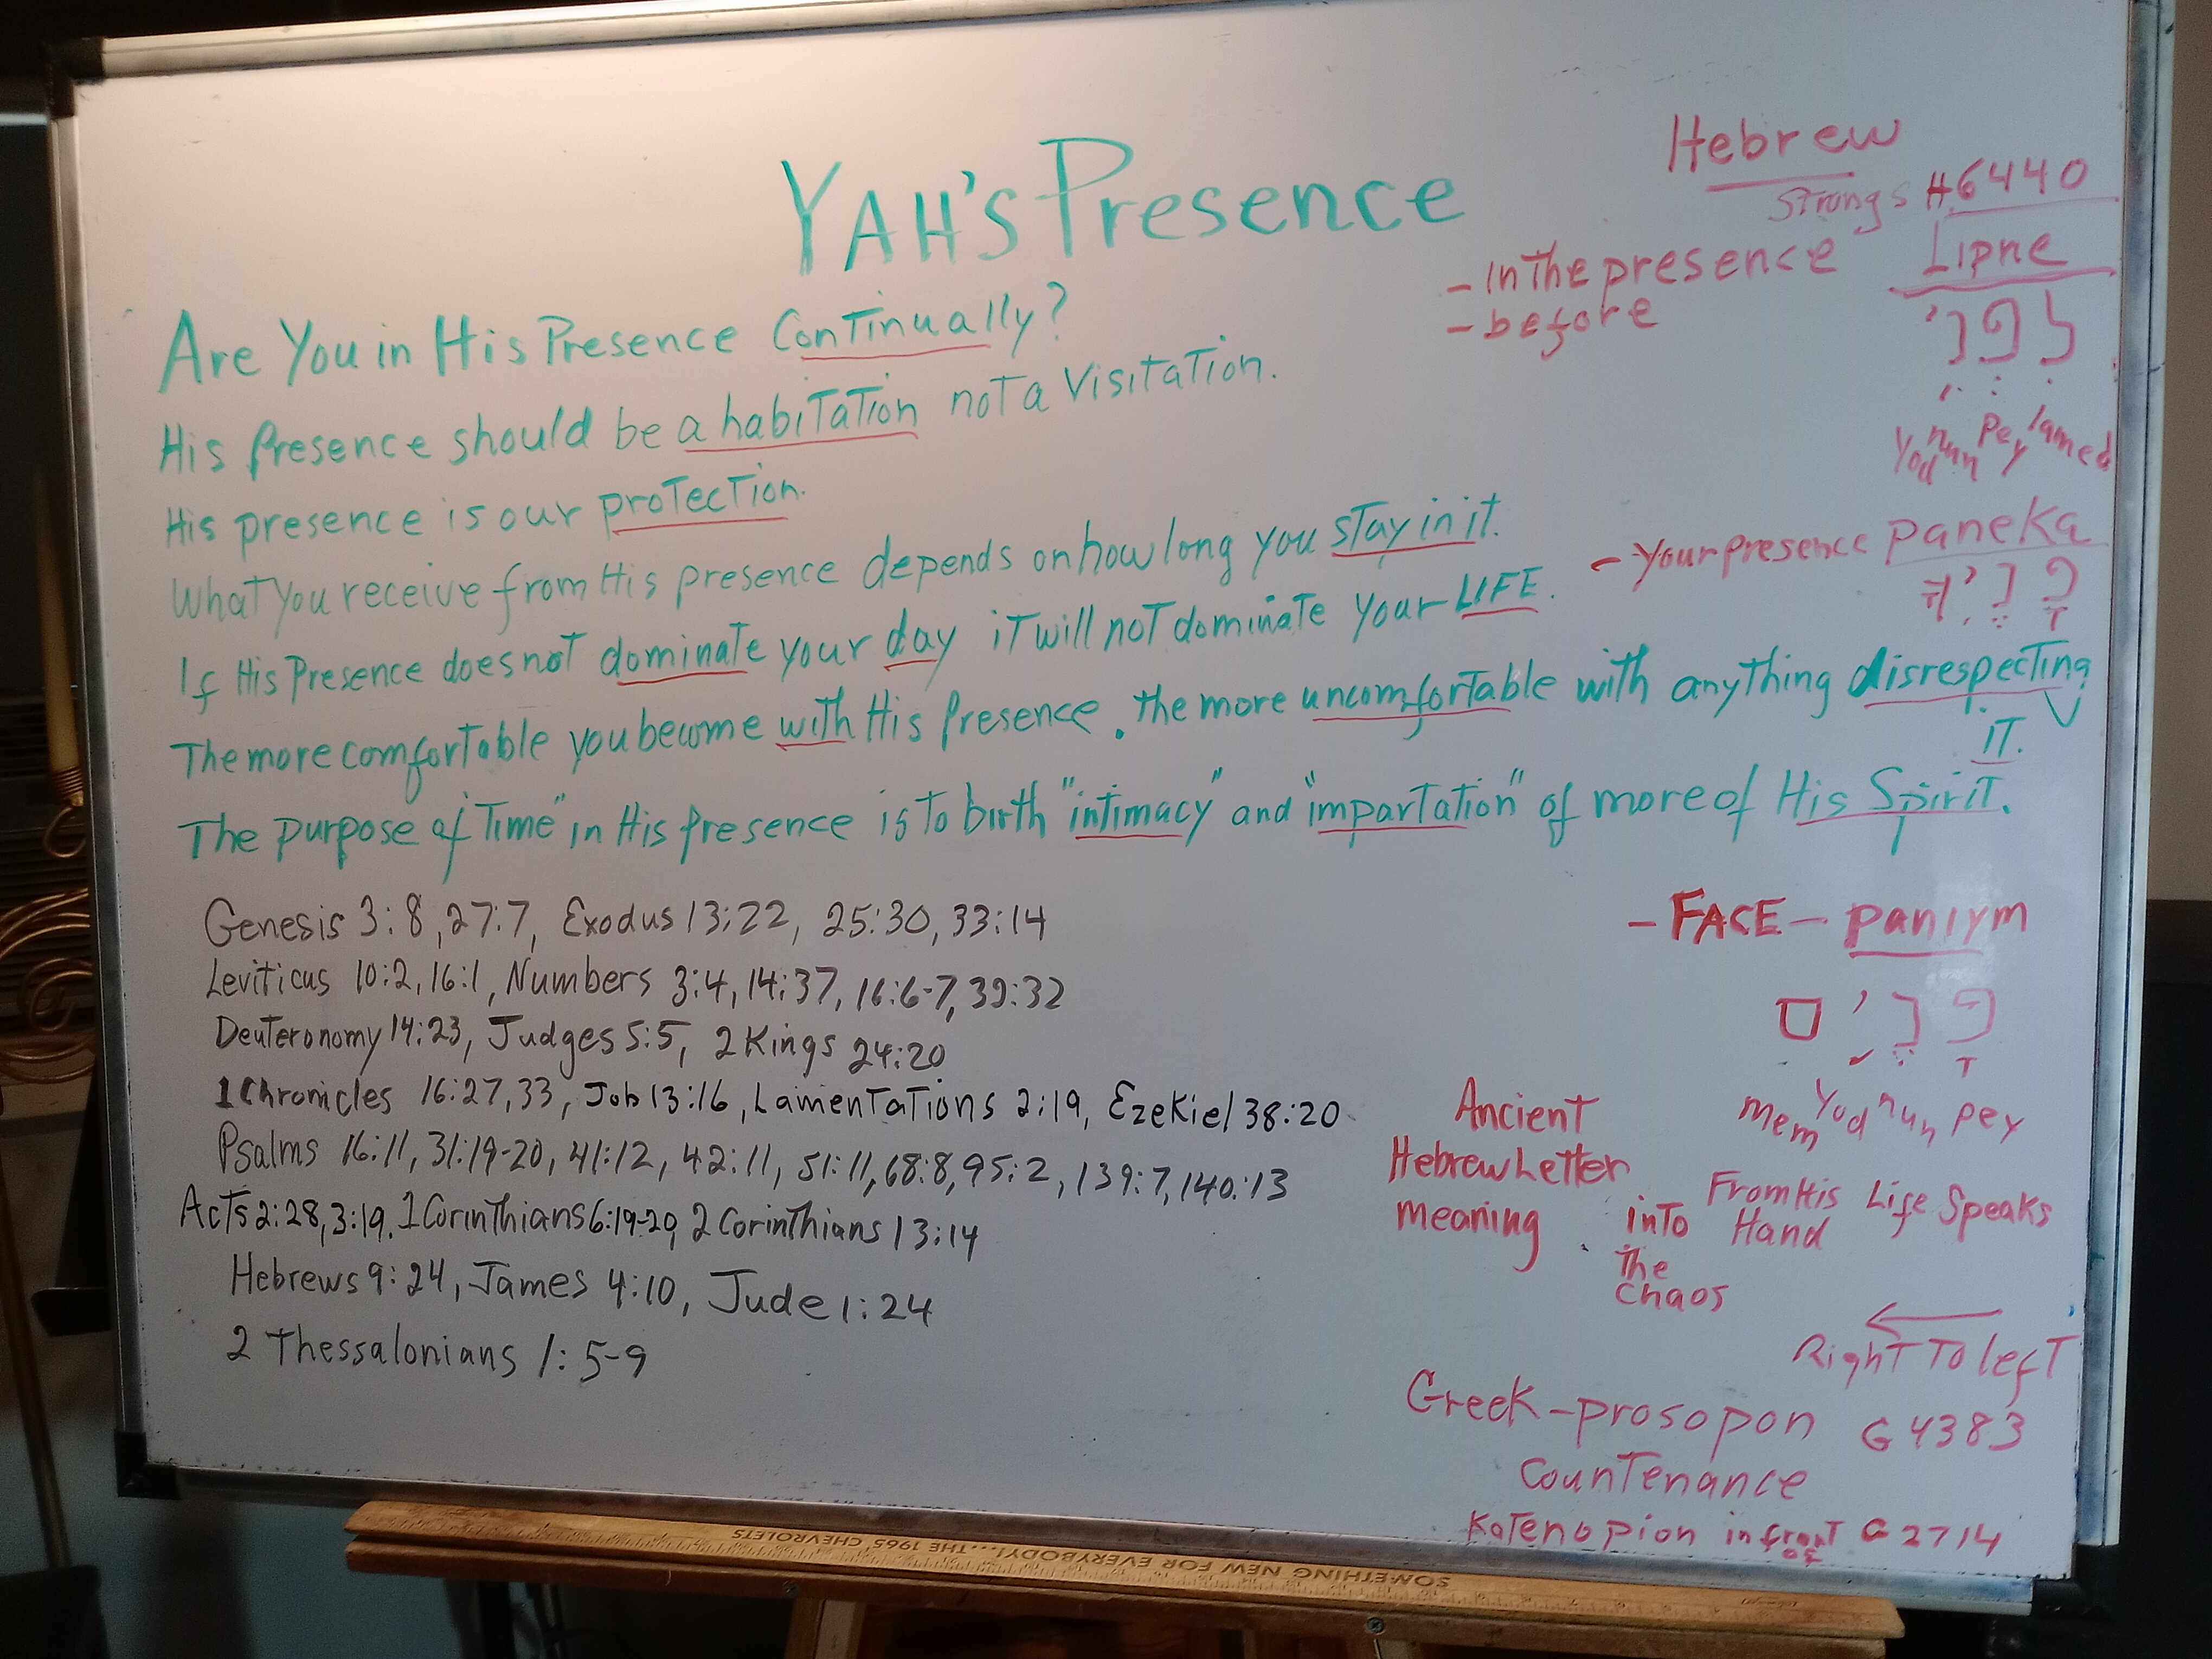 YAH'S Presence
Are You in His Presence Continually?
His Presence should be a habitation not a Visitation.
His presence is our protection.
What you receive from His presence depends on how long you stay in it.
If His Presence does not dominate your day it will not dominate your LIFE.
The more comfortable you become with His Presence. the more uncomfortable with anything disrespecting
IT.
The purpose of "Time" in His presence is to birth "intimacy" and "impartation" of more of His Spirit.
Genesis 3:8, 27:7, Exodus 13:22, 25:30, 33:14
Leviticus 10:2, 16:1, Numbers 3:4, 14:37, 16:6-7, 32:32
Deuteronomy 14:23, Judges 5:5, 2 Kings 24:20
1 Chronicles 16:27,33, Job 13:16, Lamentations 2:19, Ezekiel 38:20
Psalms 16:11, 31:19-20, 41:12, 42:11, 51:11, 68:8, 95:2, 139:7, 140:13
Acts 2:28, 3:19, 1 Corinthians 6:19-20, 2 Corinthians 13:14
Hebrews 9:24, James 4:10, Jude 1:24
2 Thessalonians 1:5-9
Hebrew
Strongs H6440
- in the presence Lipne
- before
לפני
Yod nun Pey lamed
- Your presence paneka
פָנֶיךָ
- FACE - paniym
פָנִים
mem Yod nun pey
Ancient
Hebrew Letter
meaning
into From His Life Speaks
The Hand
Chaos
←
Right To left
Greek - prosopon G4383
Countenance
Katenopion in front of G2714
SOMETHING NEW FOR EVERYBODY!...THE 1965 CHEVROLETS